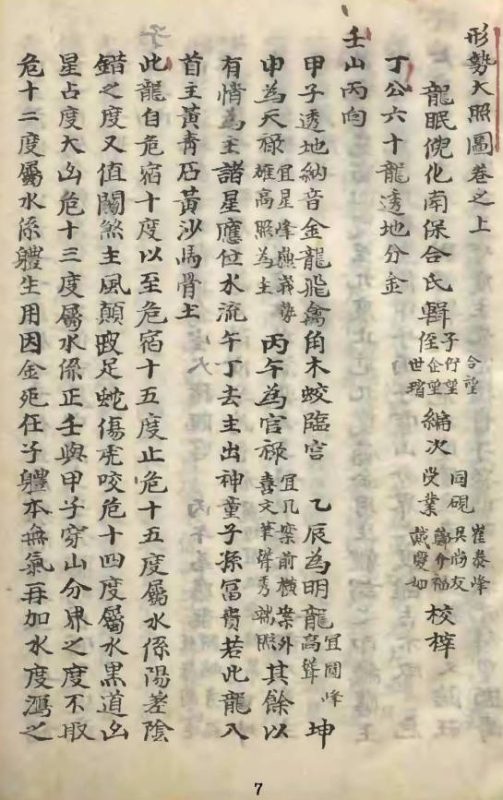 形勢大照圖卷之上
龍眠倪化南保合氏輯 子合望 佇望 侄企望 世瑠 編次 同硯受業 崔泰峰 吳尚友 戴燮如 校梓
丁公六十龍透地分金
壬山丙向
甲子透地納音金龍飛禽角木蛟臨宫 乙辰為明龍 宜閪峰高聳 坤
申為天祿 宜星峰巍峩勢雄高照為主 丙午為官祿 宜几案前横案外喜文筆聳秀端照 其餘以
有情為主諸星應位水流午丁去主出神童子孫冨貴若此龍入
首主黃青石黃沙馬骨土
子 此龍自危宿十度以至危宿十五度止危十五度屬水係陽差陰
錯之度又值關煞主風顛跛足蛇傷虎咬危十四度屬水黒道凶
星占度大凶危十三度屬水係正壬與甲子穿山分界之度不取
危十二度屬水係軆生用因金死在子軆本無氣再加水度瀉之
7